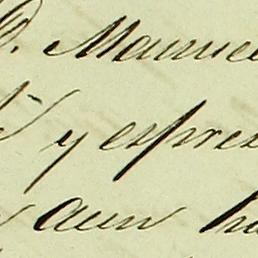 D. Manuel
y espres
aun ha